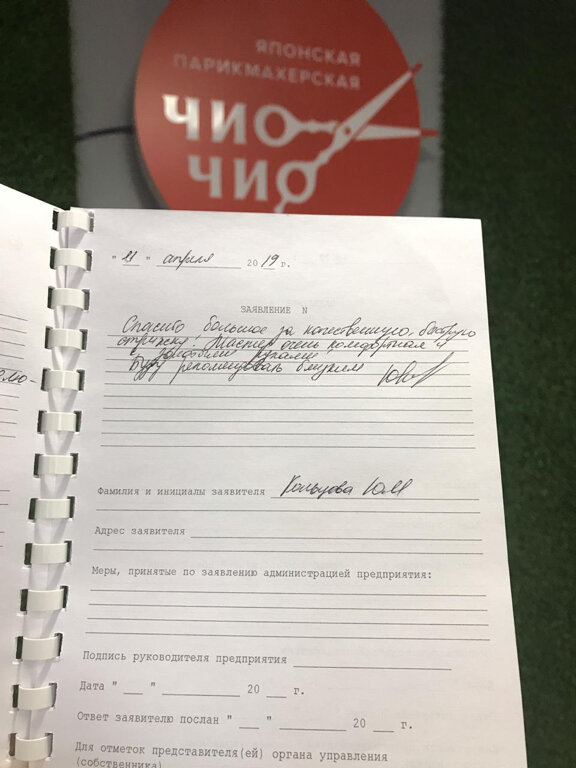 ЯПОНСКАЯ
ПАРИКМАХЕРСКАЯ
ЧИО
ЧИО
" 21 " апреля 2019 г.
ЗАЯВЛЕНИЕ N
Спасибо большое за качественную, быструю
стрижку! Мастер очень комфортная и
с золотыми руками!
Буду рекомендовать близким
Фамилия и инициалы заявителя Кольцова ЮМ
Адрес заявителя
Меры, принятые по заявлению администрацией предприятия:
Подпись руководителя предприятия
Дата " ___ " ___ 20 ___ г.
Ответ заявителю послан " ___ " ___ 20 ___ г.
Для отметок представителя(ей) органа управления
(собственника)